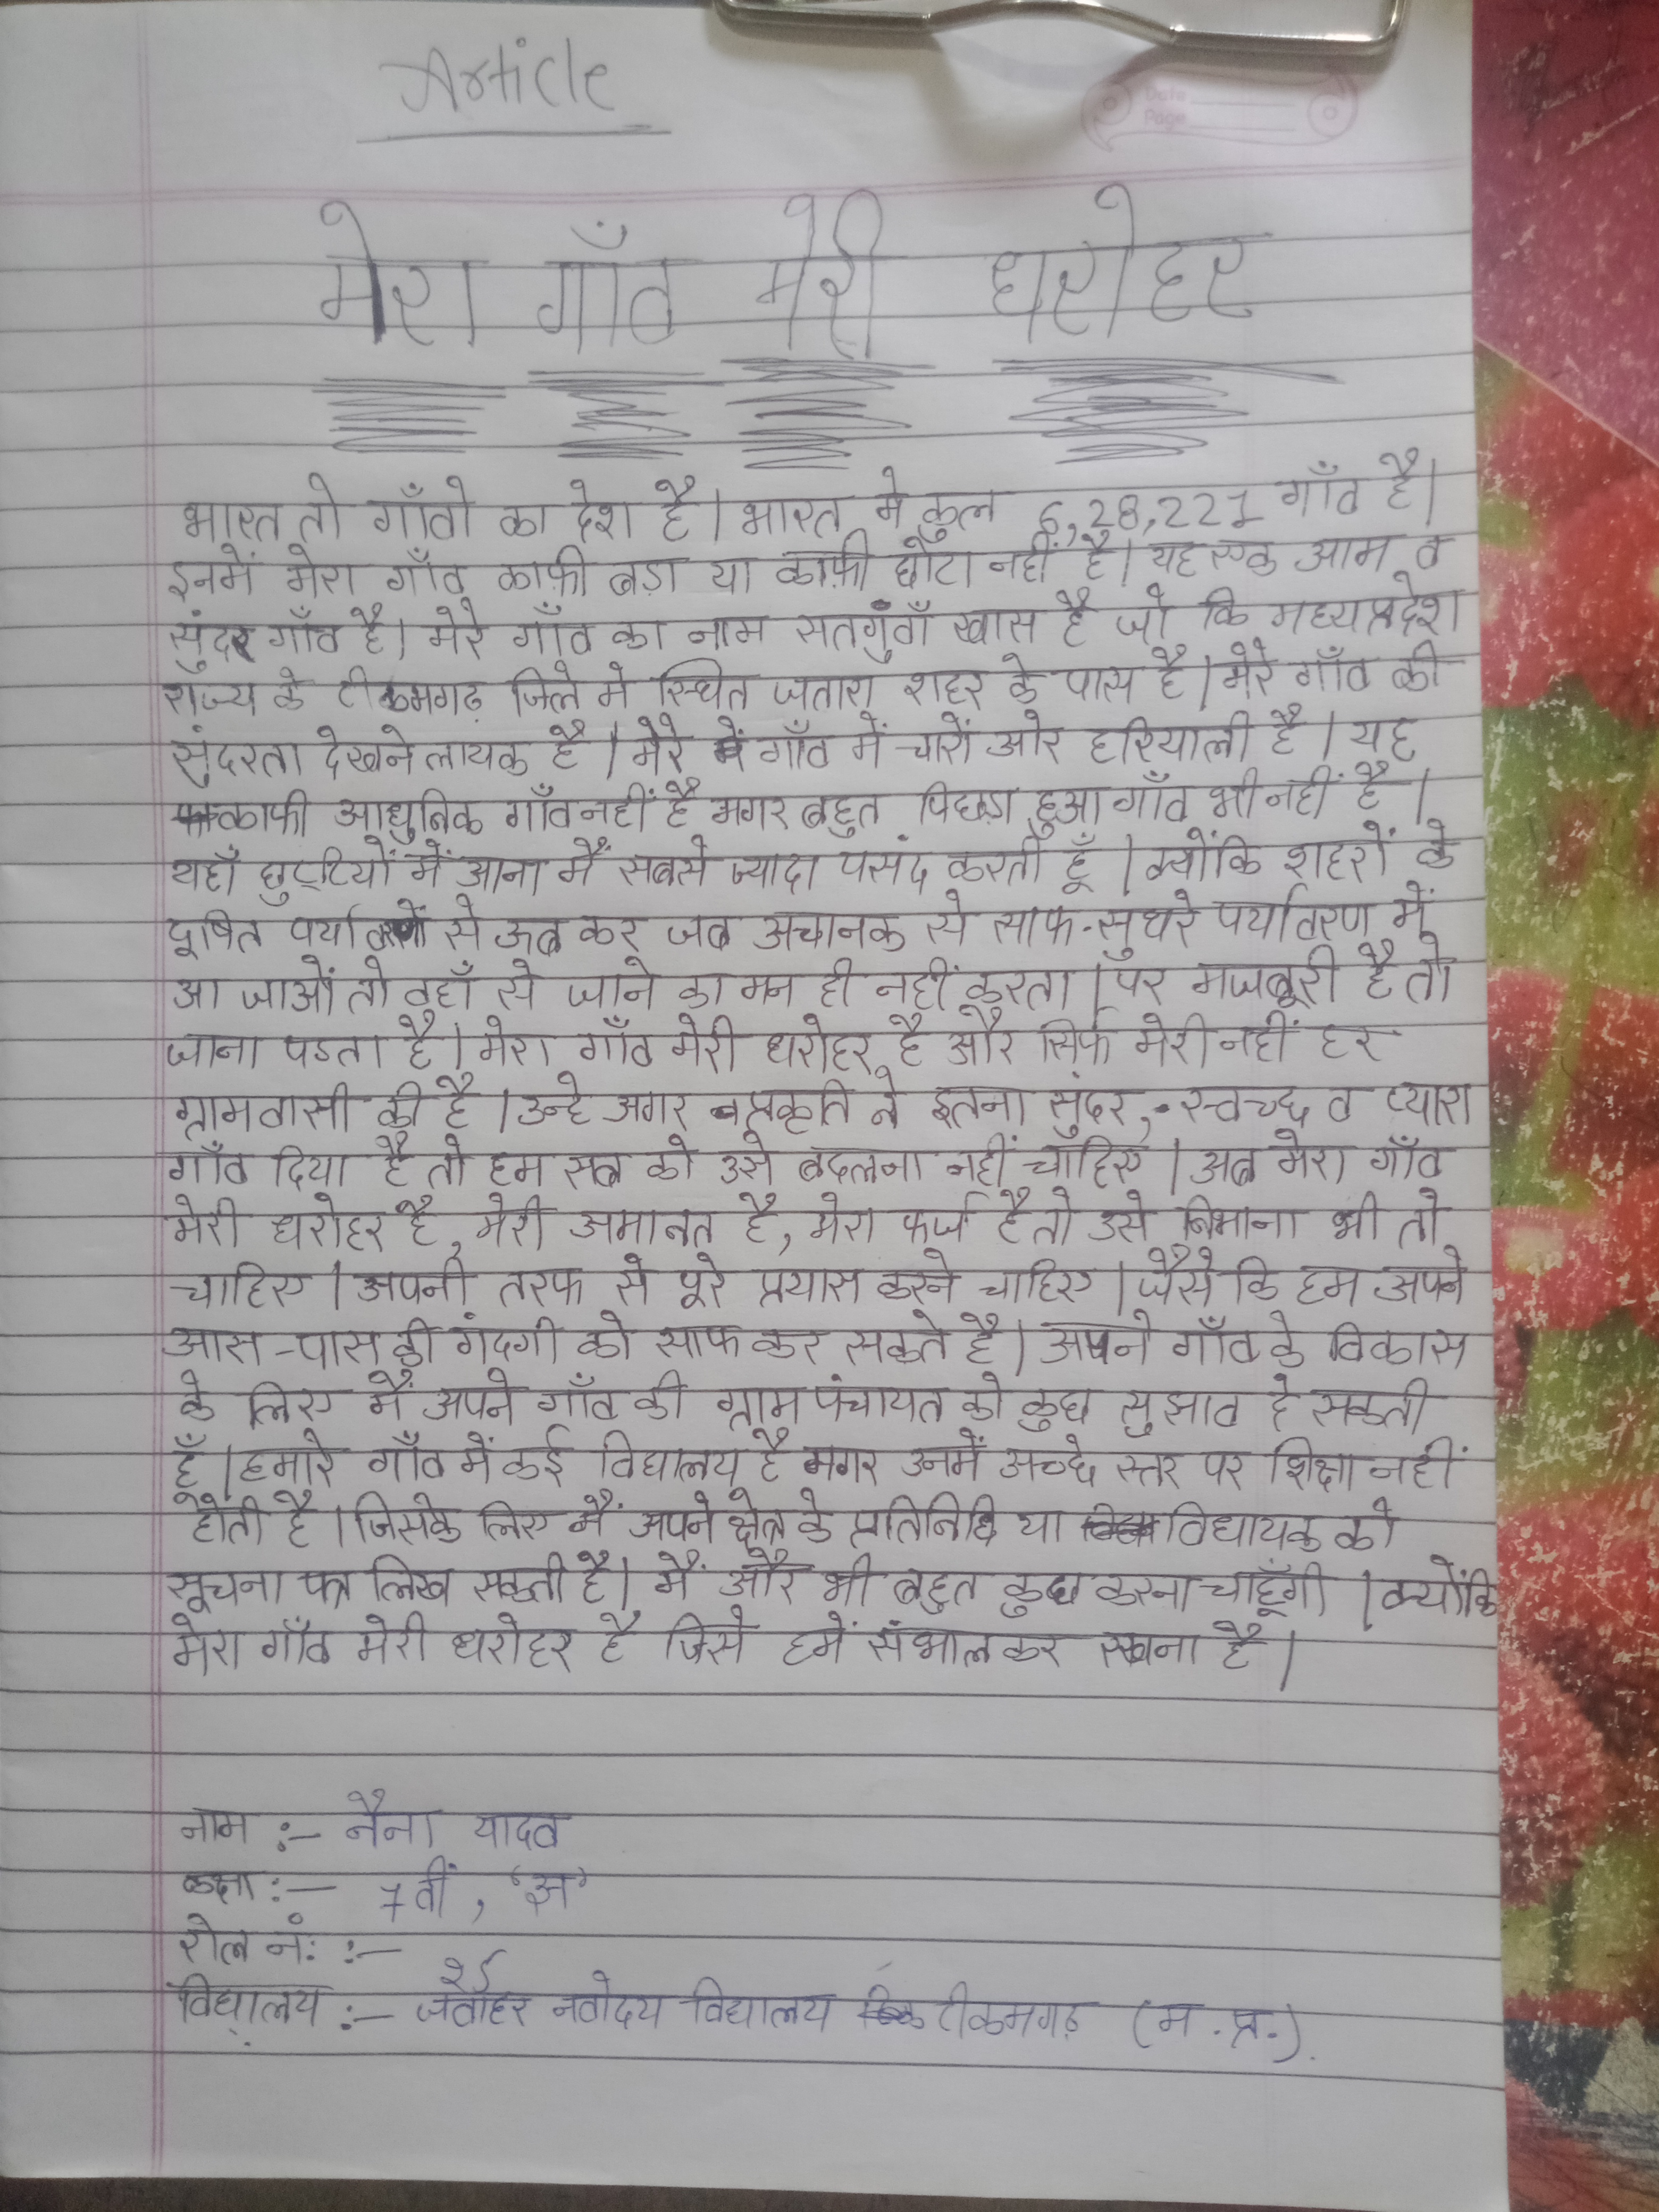 Article
Date
Page
मेरा गाँव मेरी धरोहर
भारत तो गाँवो का देश है। भारत मे कुल 6,28,221 गाँव है।
इनमें मेरा गाँव काफ़ी बड़ा या काफ़ी छोटा नहीं है। यह एक आम व
सुंदर गाँव है। मेरे गाँव का नाम सतगुवाँ खास है जो कि मध्यप्रदेश
राज्य के टीकमगढ़ जिले मे स्थित जतारा शहर के पास है। मेरे गाँव की
सुंदरता देखने लायक है। मेरे गाँव में चारों ओर हरियाली है। यह
काफी आधुनिक गाँव नहीं है मगर बहुत पिछड़ा हुआ गाँव भी नहीं है।
यहाँ छुट्टियों में आना मैं सबसे ज्यादा पसंद करती हूँ। क्योंकि शहरों के
दूषित पर्यावरणों से ऊब कर जब अचानक से साफ-सुथरे पर्यावरण में
आ जाओं तो वहाँ से जाने का मन ही नहीं करता। पर मजबूरी है तो
जाना पडता है। मेरा गाँव मेरी धरोहर है और सिर्फ मेरी नहीं हर
ग्रामवासी की है। उन्हे अगर प्रकृति ने इतना सुंदर, स्वच्छ व प्यारा
गाँव दिया है तो हम सब को उसे बदलना नहीं चाहिए। अब मेरा गाँव
मेरी धरोहर है, मेरी अमानत है, मेरा फर्ज है तो उसे निभाना भी तो
चाहिए। अपनी तरफ से पूरे प्रयास करने चाहिए। जैसे कि हम अपने
आस-पास की गंदगी को साफ कर सकते है। अपने गाँव के विकास
के लिए मैं अपने गाँव की ग्राम पंचायत को कुछ सुझाव दे सकती
हूँ। हमारे गाँव में कई विद्यालय है मगर उनमें अच्छे स्तर पर शिक्षा नहीं
होती है। जिसके लिए मैं अपने क्षेत्र के प्रतिनिधि या विधायक को
सूचना पत्र लिख सकती है। मैं और भी बहुत कुछ करना चाहूँगी। क्योंकि
मेरा गाँव मेरी धरोहर है जिसे हमें संभाल कर रखना है।
नाम :- नैना यादव
कक्षा :- 7वीं, 'अ'
रोल नं: :-
विद्यालय :- जवाहर नवोदय विद्यालय टीकमगढ़ (म.प्र.)